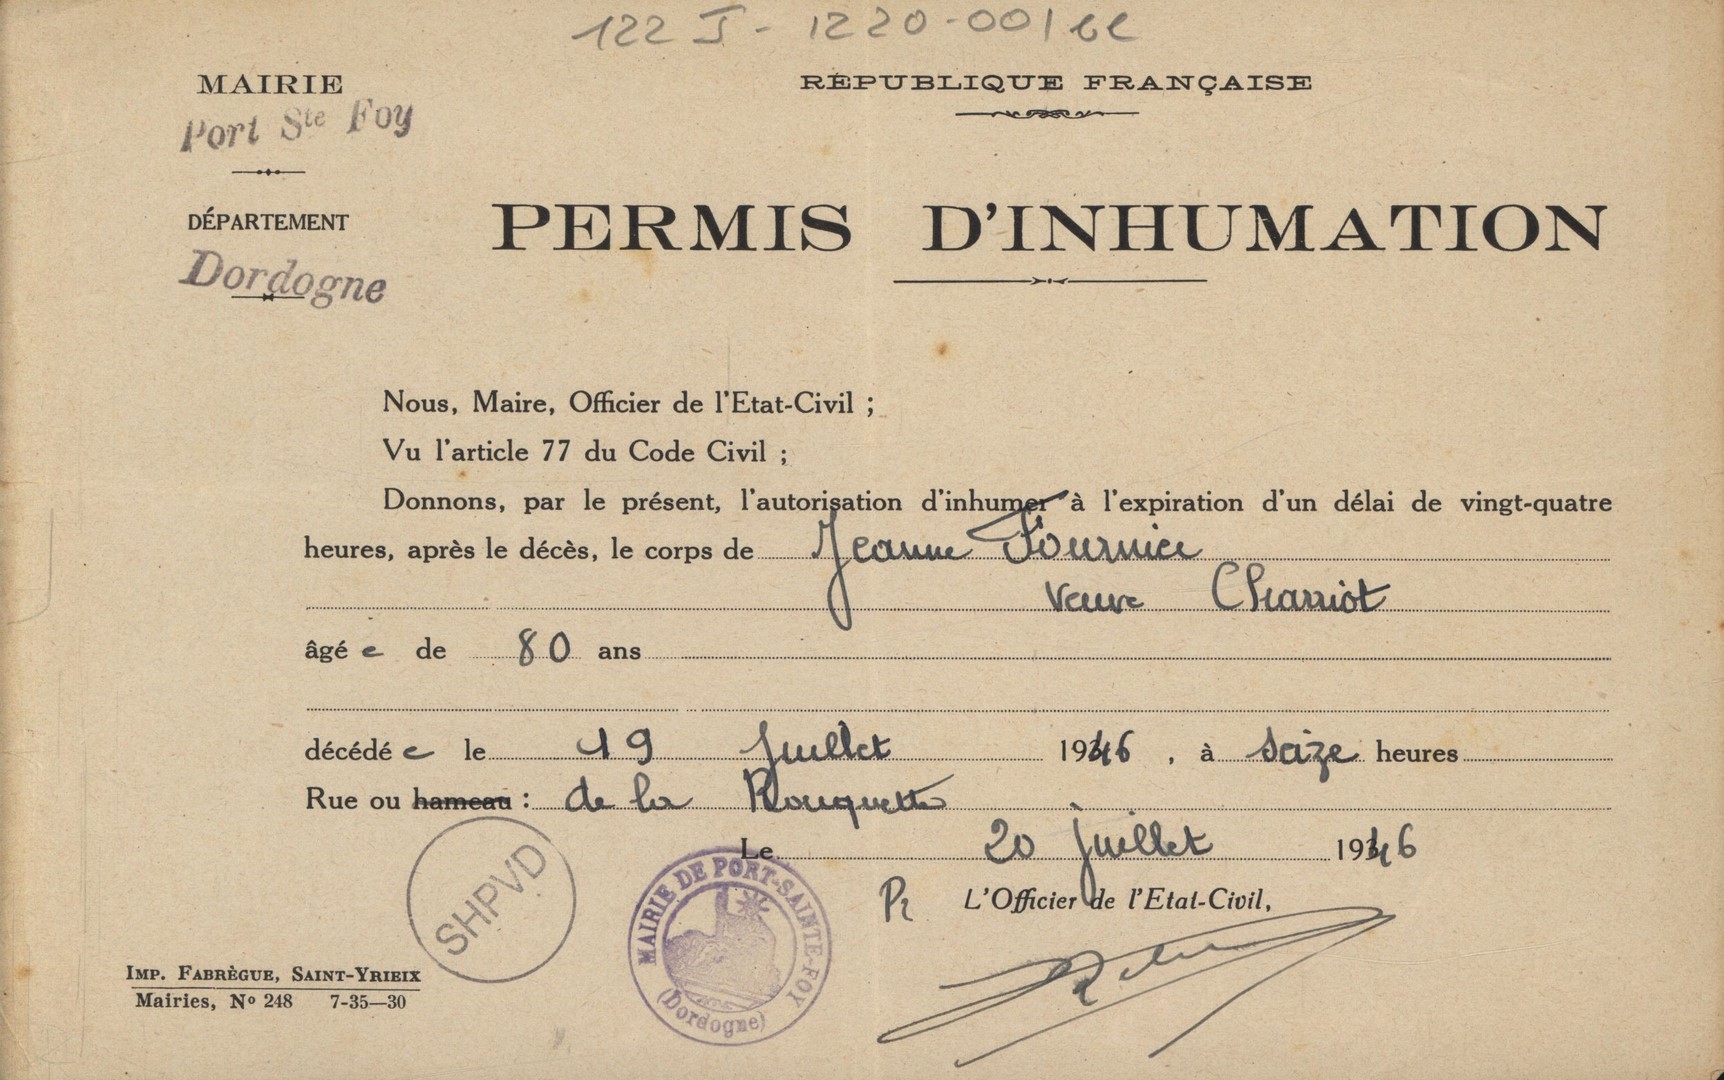 122 J - 1220-001
MAIRIE
Port Ste Foy
RÉPUBLIQUE FRANÇAISE
DÉPARTEMENT
Dordogne
PERMIS D'INHUMATION
Nous, Maire, Officier de l'Etat-Civil ;
Vu l'article 77 du Code Civil ;
Donnons, par le présent, l'autorisation d'inhumer à l'expiration d'un délai de vingt-quatre
heures, après le décès, le corps de Jeanne Fournier
Veuve Charriot
âgé e de 80 ans
décédé e le 19 Juillet 1946 , à Seize heures
Rue ou hameau : de la Rouquette
Le 20 juillet 1946
Pr L'Officier de l'Etat-Civil,
SHPVD
MAIRIE DE PORT-SAINTE-FOY
(Dordogne)
IMP. FABRÈGUE, SAINT-YRIEIX
Mairies, No 248 7-35—30